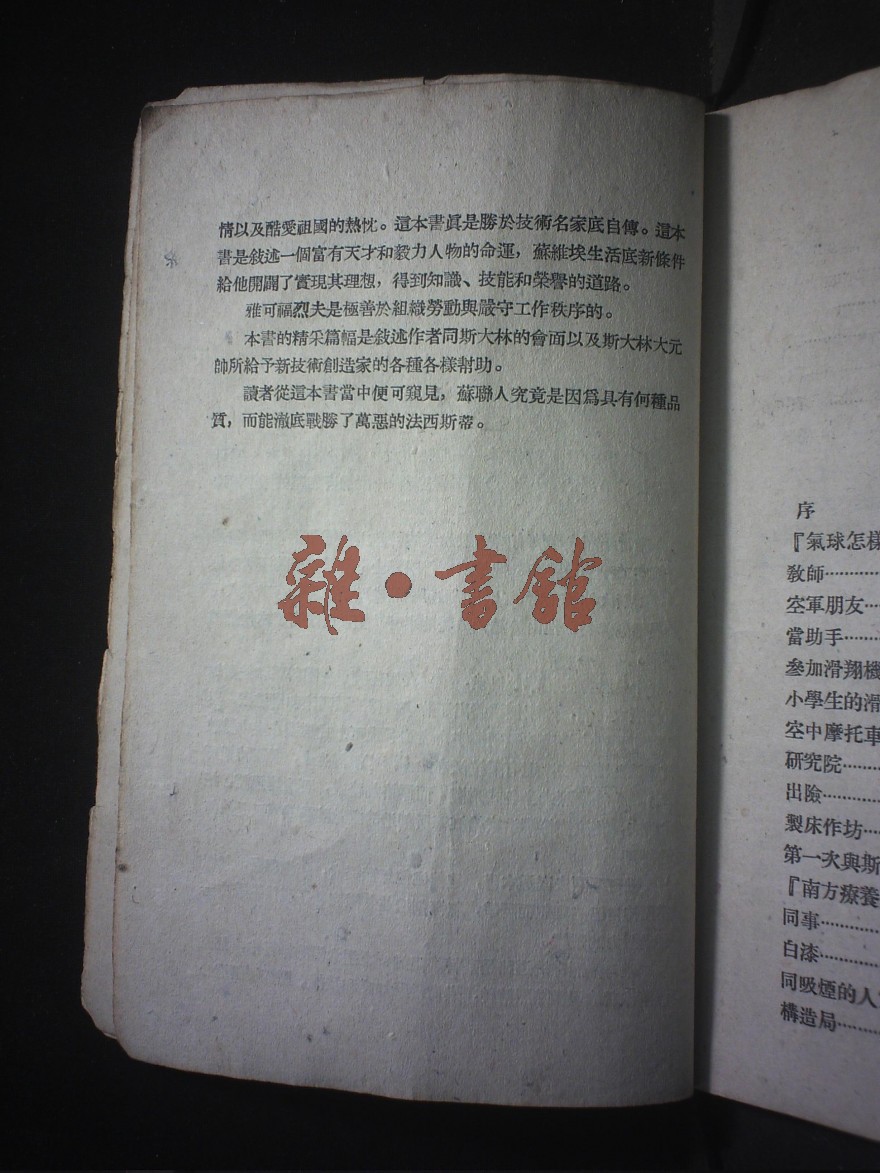 情以及酷愛祖國的熱忱。這本書眞是勝於技術名家底自傳。這本
書是敍述一個富有天才和毅力人物的命運，蘇維埃生活底新條件
給他開闢了實現其理想，得到知識、技能和榮譽的道路。
雅可福烈夫是極善於組織勞動與嚴守工作秩序的。
本書的精采篇幅是敍述作者同斯大林的會面以及斯大林大元
帥所給予新技術創造家的各種各樣幫助。
讀者從這本書當中便可窺見，蘇聯人究竟是因爲具有何種品
質，而能澈底戰勝了萬惡的法西斯蒂。
雜·書館
序
『氣球怎樣
敎師…………
空軍朋友…
當助手……
參加滑翔機
小學生的滑
空中摩托車
研究院………
出險…………
製床作坊…
第一次與斯
『南方療養
同事…………
白漆…………
同吸煙的人
構造局………